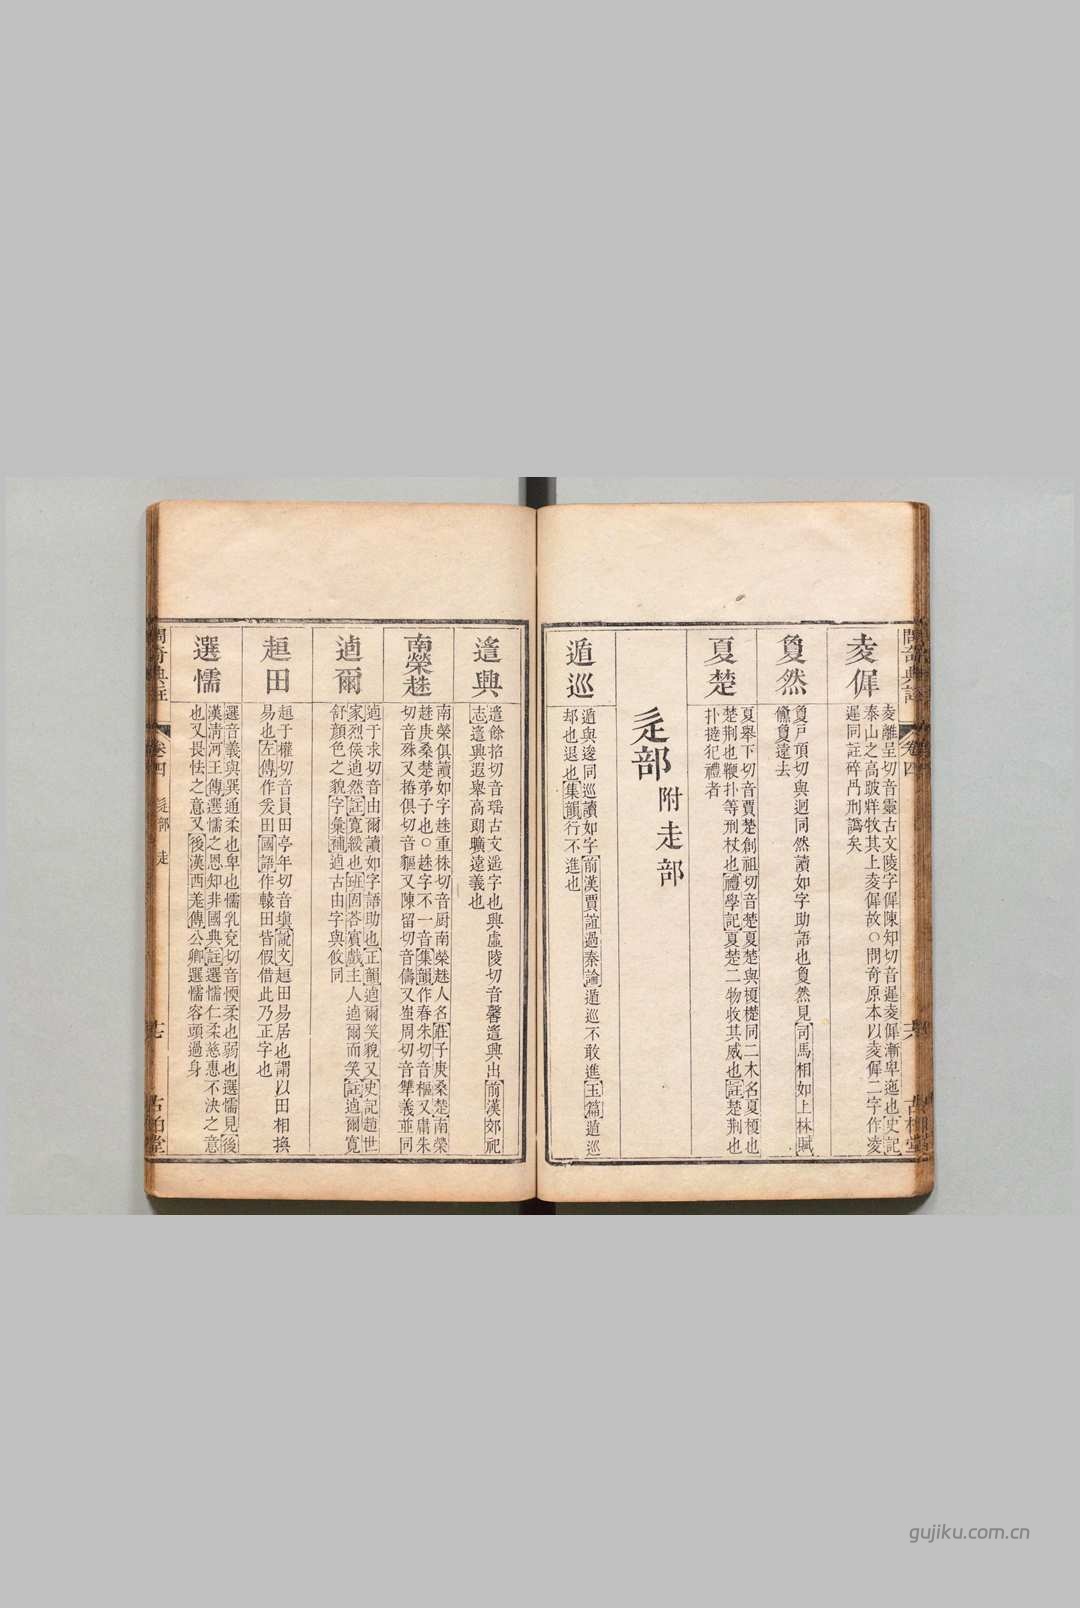 夌𠊧
夌離呈切音靈古文陵字𠊧陳知切音遲夌𠊧漸卑迤也史記
泰山之高跛牂牧其上夌𠊧故○問奇原本以夌𠊧二字作凌
遲同註碎冎刑譌矣
夐然
夐戸頂切與迥同然讀如字助語也夐然見司馬相如上林賦
儵夐遠去
夏楚
夏舉下切音賈楚創祖切音楚夏楚與榎檚同二木名夏榎也
楚荆也鞭扑等刑杖也禮學記夏楚二物收其威也註楚荆也
扑撻犯禮者
辵部附走部
遁巡
遁與逡同巡讀如字前漢賈誼過秦論遁巡不敢進玉篇遁巡
却也退也集韻行不進也
遙興
遙餘招切音瑶古文遥字也興虛陵切音馨遙興出前漢郊祀
志遙興遐舉高朗曠遠義也
南榮趎
南榮俱讀如字趎重株切音厨南榮趎人名莊子庚桑楚南榮
趎庚桑楚弟子也○趎字不一音集韻作春朱切音樞又肅朱
切音殊又椿俱切音貙又陳留切音儔又蚩周切音犨義並同
逌爾
逌于求切音由爾讀如字語助也正韻逌爾笑貌又史記趙世
家烈侯逌然註寛緩也班固荅賓戲主人逌爾而笑註逌爾寛
舒顏色之貌字彙補逌古由字與攸同
趄田
趄于權切音員田亭年切音塡說文趄田易居也謂以田相換
易也左傳作爰田國語作轅田皆假借此乃正字也
選懦
選音義與巽通柔也卑也懦乳兗切音愞柔也弱也選懦見後
漢淸河王傳選懦之恩知非國典註選懦仁柔慈惠不決之意
也又畏怯之意又後漢西羌傳公卿選懦容頭過身
問奇典註 卷四 辵部 走 十七 古柏堂
gujiku.com.cn